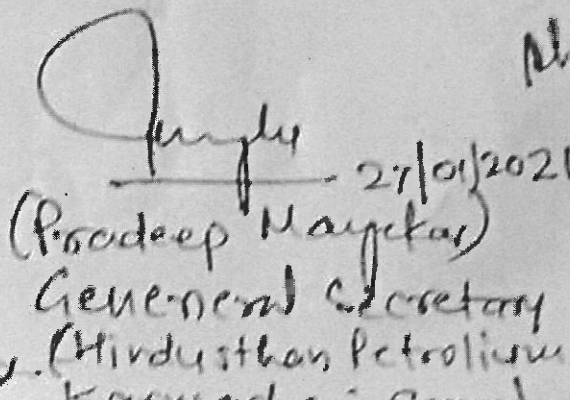 27/01/2021
(Pradeep Mayekar)
General Secretary
(Hindusthan Petrolium